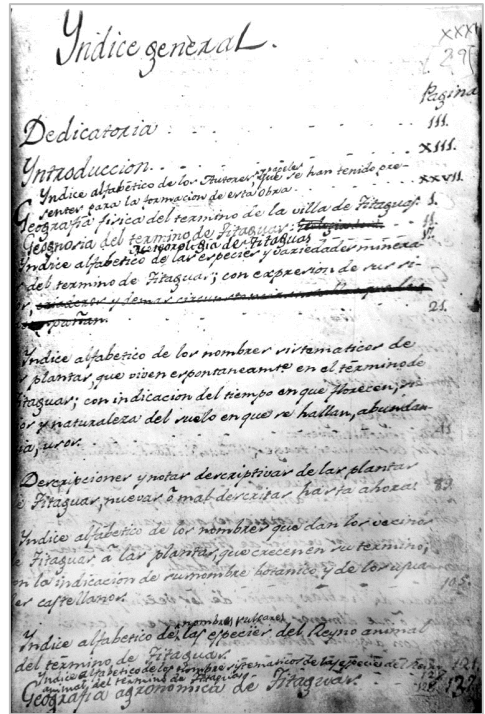 Yndice general.
XXXI
295
Pagina
Dedicatoria III.
Yntroduccion XIII.
Yndice alfabético de los Autores que se han tenido pre-
sentes para la formacion de esta obra XXVII.
Geografia fisica del termino de la villa de Titaguas. 1.
Geognosia del termino de Titaguas: 11.
Meteorologia de Titaguas 17.
Yndice alfabetico de las especies y variedades minera
del termino de Titaguas; con expresion de sus si-
y demas circunstancias
pañan. 21.
Yndice alfabetico de los nombres sistematicos de
plantas, que viven espontaneamte en el termino de
itaguas; con indicacion del tiempo en que florecen,
or y naturaleza del suelo en que se hallan, abundan-
ia, usos. 41
Descripciones y notas descriptivas de las plantas
e Titaguas, nuevas ò mal descritas hasta ahora:
Yndice alfabetico de los nombres que dan los vecinos
e Titaguas à las plantas, que crecen en su termino;
on la indicacion de su nombre botánico y de los usua
es castellanos. 105
nombres vulgares
Yndice alfabetico de las especies del Reyno animal
del termino de Titaguas. 121.
Yndice alfabetico de los nombres sistematicos de las especies del Reyno
animal del termino de Titaguas
Geografia agronomica de Titaguas. 127.